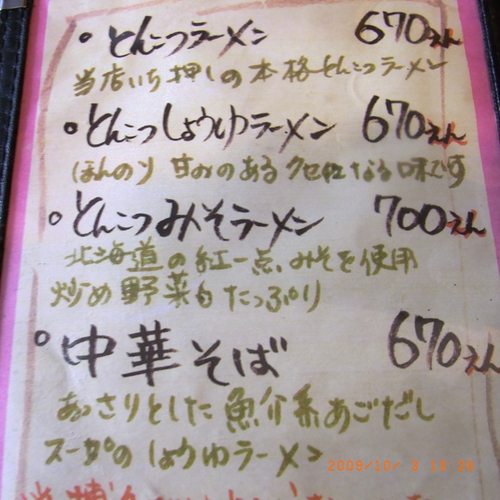 ・とんこつラーメン 670えん
当店いち押しの本格とんこつラーメン
・とんこつしょうゆラーメン 670えん
ほんのり甘みのあるクセになる味です
・とんこつみそラーメン 700えん
北海道の紅一点、みそを使用
炒め野菜もたっぷり
・中華そば 670えん
あっさりとした魚介系あごだし
スープのしょうゆラーメン